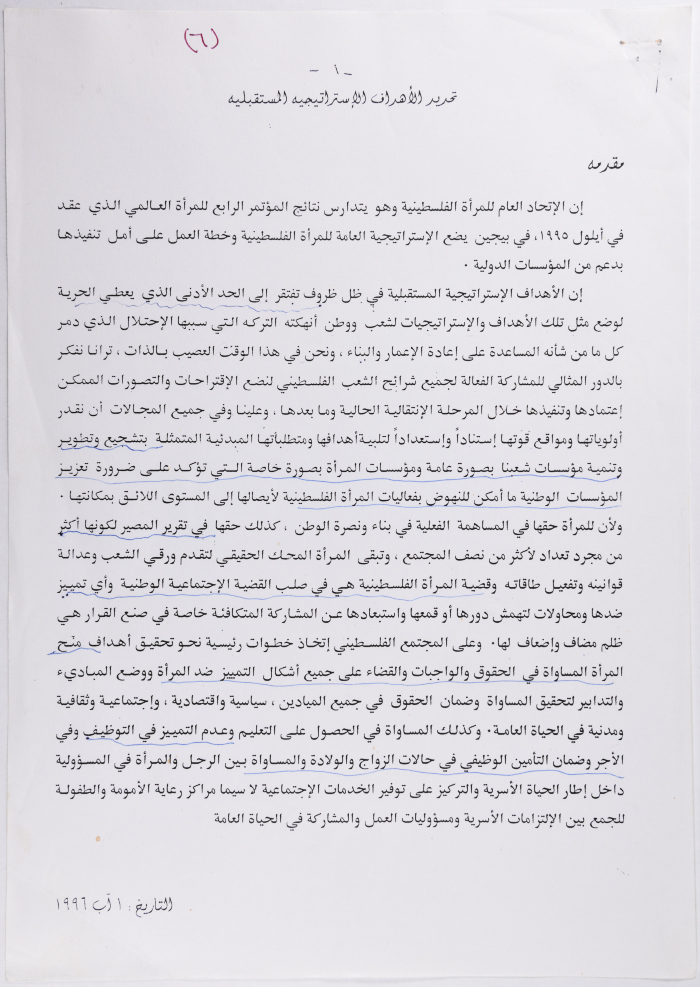 (٦)
- أ -
تحديد الأهداف الإستراتيجيه المستقبليه
مقدمه
إن الإتحاد العام للمرأة الفلسطينية وهو يتدارس نتائج المؤتمر الرابع للمرأة العالمي الذي عقد
في أيلول ١٩٩٥، في بيجين يضع الإستراتيجية العامة للمرأة الفلسطينية وخطة العمل على أمل تنفيذها
بدعم من المؤسسات الدولية .
إن الأهداف الإستراتيجية المستقبلية في ظل ظروف تفتقر إلى الحد الأدنى الذي يعطي الحرية
لوضع مثل تلك الأهداف والإستراتيجيات لشعب ووطن أنهكته التركه التي سببها الإحتلال الذي دمر
كل ما من شأنه المساعدة على إعادة الإعمار والبناء ، ونحن في هذا الوقت العصيب بالذات ، ترانا نفكر
بالدور المثالي للمشاركة الفعالة لجميع شرائح الشعب الفلسطيني لنضع الإقتراحات والتصورات الممكن
إعتمادها وتنفيذها خلال المرحلة الإنتقالية الحالية وما بعدها ، وعلينا وفي جميع المجالات أن نقدر
أولوياتها ومواقع قوتها إستناداً وإستعداداً لتلبية أهدافها ومتطلباتها المبدئية المتمثلة بتشجيع وتطوير
وتنمية مؤسسات شعبنا بصورة عامة ومؤسسات المرأة بصورة خاصة التي تؤكد على ضرورة تعزيز
المؤسسات الوطنية ما أمكن للنهوض بفعاليات المرأة الفلسطينية لأيصالها إلى المستوى اللائق بمكانتها .
ولأن للمرأة حقها في المساهمة الفعلية في بناء ونصرة الوطن ، كذلك حقها في تقرير المصير لكونها أكثر
من مجرد تعداد لأكثر من نصف المجتمع ، وتبقى المرأة المحك الحقيقي لتقدم ورقي الشعب وعدالة
قوانينه وتفعيل طاقاته وقضية المرأة الفلسطينية هي في صلب القضية الإجتماعية الوطنية وأي تمييز
ضدها ومحاولات لتهمش دورها أو قمعها واستبعادها عن المشاركة المتكافئة خاصة في صنع القرار هي
ظلم مضاف وإضعاف لها. وعلى المجتمع الفلسطيني إتخاذ خطوات رئيسية نحو تحقيق أهداف منّح
المرأة المساواة في الحقوق والواجبات والقضاء على جميع أشكال التمييز ضد المرأة ووضع المباديء
والتدابير لتحقيق المساواة وضمان الحقوق في جميع الميادين ، سياسية واقتصادية ، وإجتماعية وثقافية
ومدنية في الحياة العامة. وكذلك المساواة في الحصول على التعليم وعدم التمييز في التوظيف وفي
الأجر وضمان التأمين الوظيفي في حالات الزواج والولادة والمساواة بين الرجل والمرأة في المسؤولية
داخل إطار الحياة الأسرية والتركيز على توفير الخدمات الإجتماعية لا سيما مراكز رعاية الأمومة والطفولة
للجمع بين الإلتزامات الأسرية ومسؤوليات العمل والمشاركة في الحياة العامة
التاريخ: ١ آب ١٩٩٦